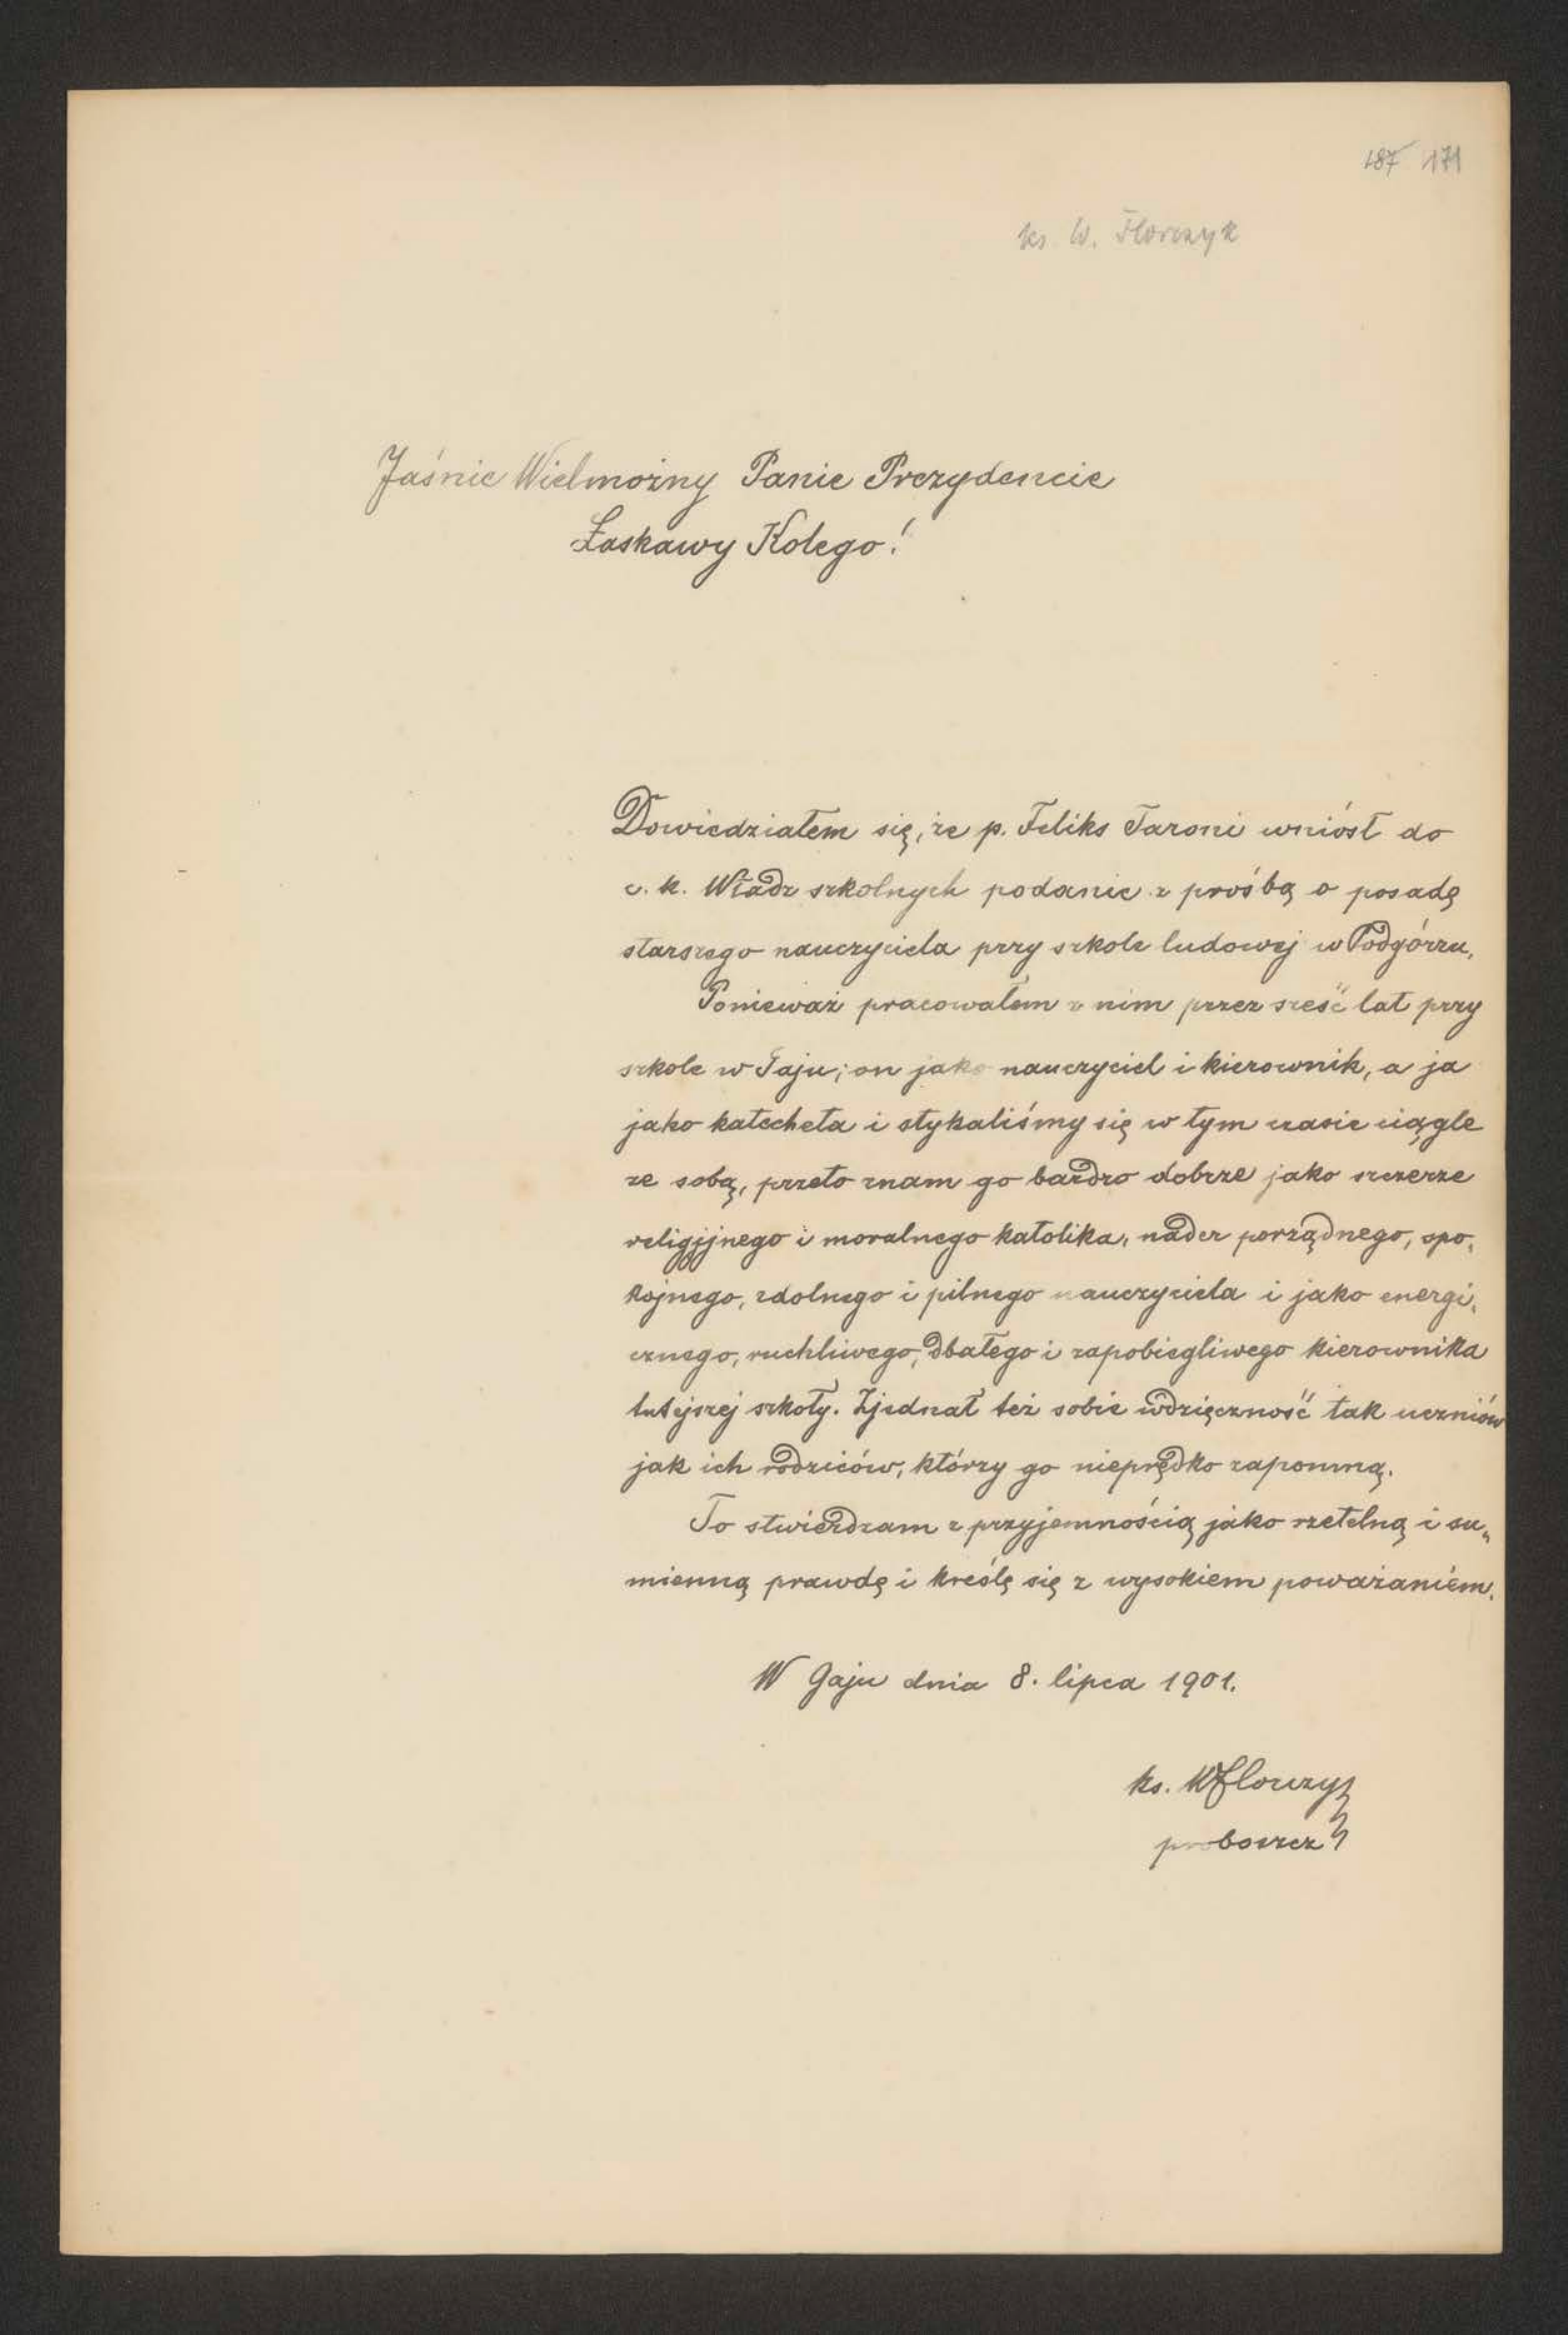 187 171
ks. W. Florczyk
Jaśnie Wielmożny Panie Prezydencie
Łaskawy Kolego!
Dowiedziałem się, że p. Feliks Taroni wniósł do
c. k. Władz szkolnych podanie z prośbą o posadę
starszego nauczyciela przy szkole ludowej w Podgórzu.
Ponieważ pracowałem z nim przez sześć lat przy
szkole w Gaju; on jako nauczyciel i kierownik, a ja
jako katecheta i stykaliśmy się w tym czasie ciągle
ze sobą, przeto znam go bardzo dobrze jako szczerze
religijnego i moralnego katolika, nader porządnego, spo„
kojnego, zdolnego i pilnego nauczyciela i jako energi„
cznego, ruchliwego, dbałego i zapobiegliwego kierownika
tutejszej szkoły. Zjednał też sobie wdzięczność tak uczniów
jak ich rodziców, którzy go nieprędko zapomną.
To stwierdzam z przyjemnością jako rzetelną i su„
mienną prawdę i kreślę się z wysokiem poważaniem.
W Gaju dnia 8. lipca 1901.
ks. WFlorczyk
proboszcz